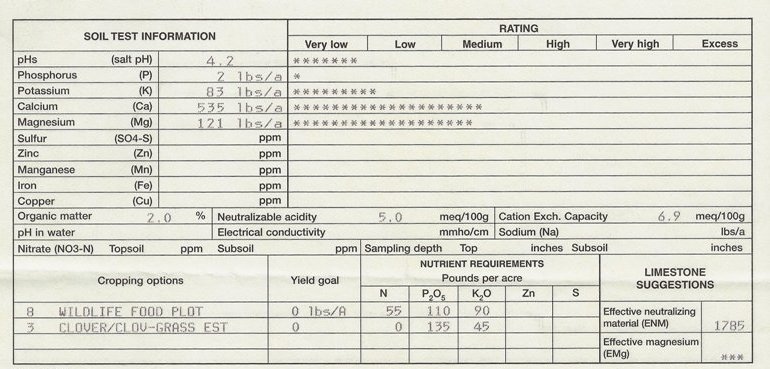 SOIL TEST INFORMATION RATING
Very low Low Medium High Very high Excess
pHs (salt pH) 4.2 *******
Phosphorus (P) 2 lbs/a *
Potassium (K) 83 lbs/a *********
Calcium (Ca) 535 lbs/a *********************
Magnesium (Mg) 121 lbs/a ********************
Sulfur (SO4-S) ppm
Zinc (Zn) ppm
Manganese (Mn) ppm
Iron (Fe) ppm
Copper (Cu) ppm
Organic matter 2.0 % Neutralizable acidity 5.0 meq/100g Cation Exch. Capacity 6.9 meq/100g
pH in water Electrical conductivity mmho/cm Sodium (Na) lbs/a
Nitrate (NO3-N) Topsoil ppm Subsoil ppm Sampling depth Top inches Subsoil inches
Cropping options Yield goal NUTRIENT REQUIREMENTS LIMESTONE SUGGESTIONS
Pounds per acre
N P2O5 K2O Zn S
8 WILDLIFE FOOD PLOT 0 lbs/A 55 110 90 Effective neutralizing
3 CLOVER/CLOV-GRASS EST 0 0 135 45 material (ENM) 1785
Effective magnesium
(EMg) ***